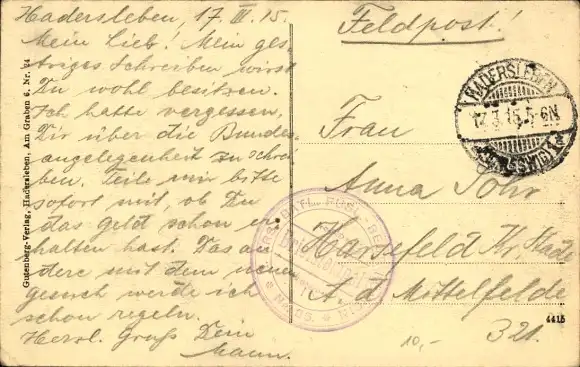 Hadersleben, 17. III. 15.
Mein Lieb! Mein ges-
triges Schreiben wirst
Du wohl besitzen.
Ich hatte vergessen,
Dir über die Bundes-
angelegenheit zu schrei
ben. Teile mir bitte
sofort mit, ob Du
das Geld schon er
halten hast. Das an
dere mit dem neuen
Gesuch werde ich
schon regeln.
Herzl. Gruß Dein
Mann.
Gutenberg-Verlag, Hadersleben, Am Graben 6. Nr. 24
Feldpost!
HADERSLEBEN
17.3.15.5-6N
(SCHLESWIG)
Frau
Anna
Harsefeld Kr. Stade
A. d. Mittelfelde
321.
10,-
4415